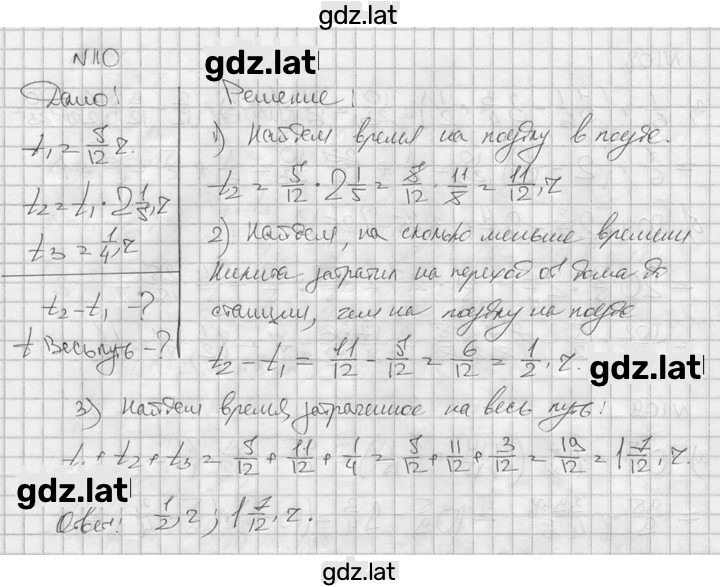 gdz.lat
N110
gdz.lat
Дано:
Решение:
t₁ = 5/12 ч.
t₂ = t₁ · 2 1/5, ч
t₃ = 1/4, ч
t₂ - t₁ - ?
t весь путь - ?
1) Найдем время на поездку в поезде.
t₂ = 5/12 · 2 1/5 = 5/12 · 11/5 = 11/12, ч
2) Найдем, на сколько меньше времени
Никита затратил на переход от дома до
станции, чем на поездку на поезде
t₂ - t₁ = 11/12 - 5/12 = 6/12 = 1/2, ч.
gdz.lat
3) Найдем время, затраченное на весь путь:
t₁ + t₂ + t₃ = 5/12 + 11/12 + 1/4 = 5/12 + 11/12 + 3/12 = 19/12 = 1 7/12, ч.
gdz.lat
Ответ: 1/2, ч; 1 7/12, ч.
gdz.lat